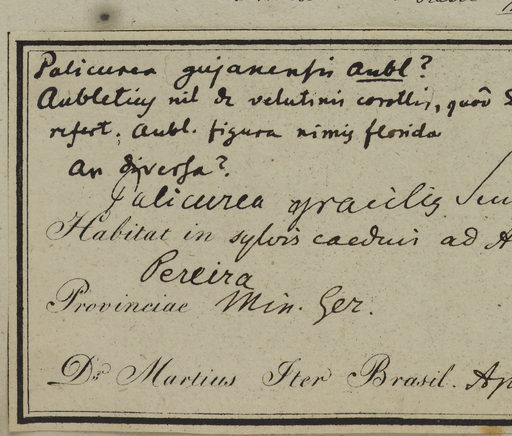 Palicurea gujanensis Aubl?
Aubletius nil de velutinis corollis, quod
refert; Aubl. figura nimis florida
An diversa?
Palicurea gracilis
Habitat in sylvis caeduis ad
Pereira
Provinciae Min. Ger.
Dr. Martius Iter Brasil.